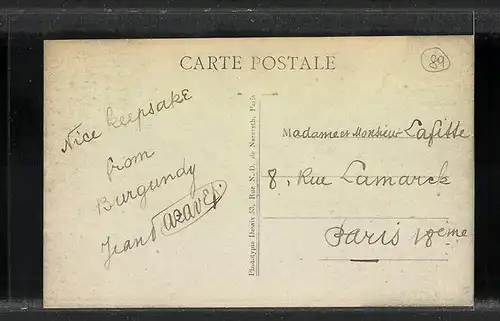 CARTE POSTALE
89
Nice keepsake
from
Burgundy
Jean
Phototypie Desaix 53, Rue N.-D. de Nazareth, Paris
Madame et Monsieur Lafitte
8, Rue Lamarck
Paris 18eme